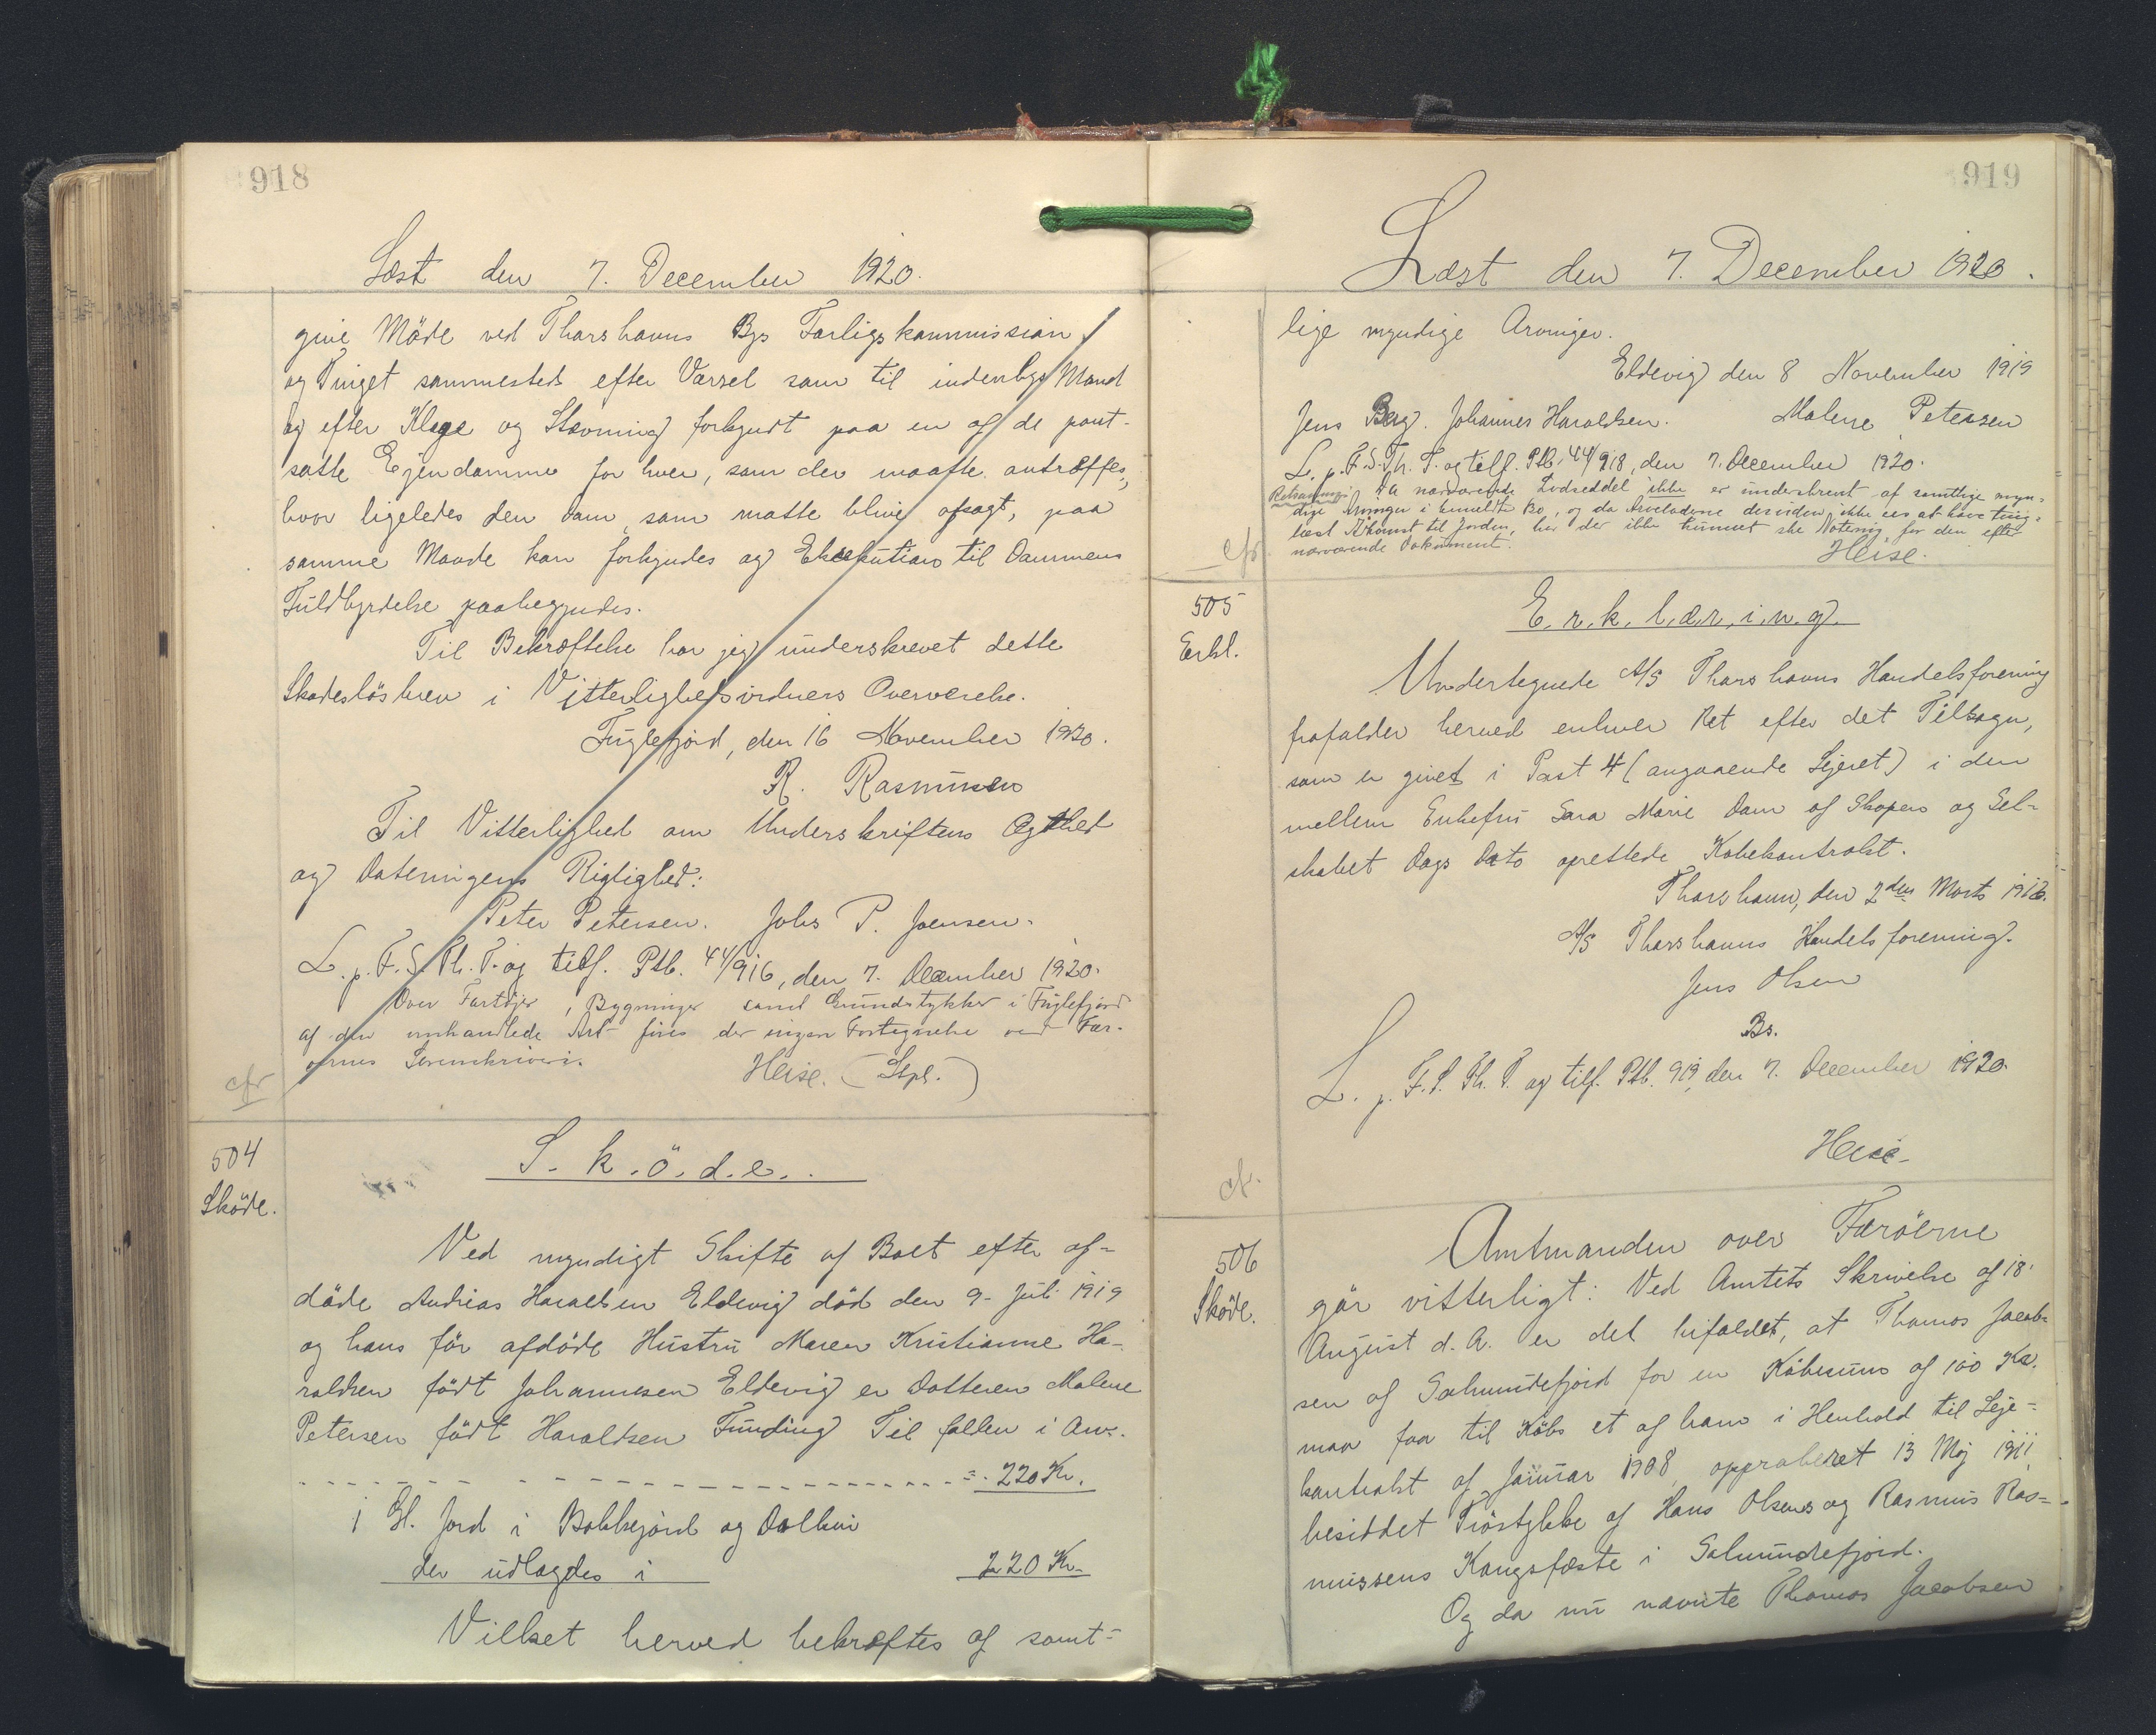 918
Læst den 7. December 1920.
give Möde ved Thorshavns Bys Forligskommission
og Tinget sammesteds efter Varsel som til indenbys Mand
og efter Klage og Stævning forkyndt paa en af de pant-
satte Ejendomme for hver, som der maatte antræffes,
hvor ligeledes den Dom, som matte blive afsagt, paa
samme Maade kan forkyndes og Eksekution til Dommens
Fuldbyrdelse paabegyndes.
Til Bekræftelse har jeg underskrevet dette
Skadeslösbrev i Vitterlighedsvidners Overværelse.
Fuglefjord, den 16 November 1920.
R. Rasmussen
Til Vitterlighed om Underskriftens Ægthed
og Dateringens Rigtighed:
Peter Petersen. Johs P. Joensen.
L. p. F. S. Th. T. og tilf. Ptb. 44/916, den 7. December 1920.
Over Fartöjer, Bygninger samt Grundstykker i Fuglefjord
af den omhandlede Art fins der ingen Fortegnelse ved Fær-
öernes Sorenskriveri.
Heise. (Stpl.)
cfr
504
Sköde.
S.k.ö.d.e..
Ved myndigt Skifte af Boet efter af-
döde Andrias Haraldsen Eldevig död den 9. Juli 1919
og hans för afdöde Hustru Maren Kristianne Ha-
raldsen födt Johannesen Eldevig er Datteren Malene
Petersen födt Haraldsen Funding Til fallen i Arv.
220 Kr.
1 Gl. Jord i Bakkejord og
der udlagdes i 220 Kr.
Vilket herved bekræftes af samt-
919
Læst den 7. December 1920.
lige myndige Arvinger.
Eldevig den 8 November 1919
Jens Berg. Johannes Haraldsen. Malene Petersen
L. p. F. S. Th. T. og tilf. Ptb. 44/918, den 7. December 1920.
Da nærværende Lodseddel ikke er underskrevt af samtlige myn-
dige Arvinger i anmeldte Bo, og da Arveladerne desuden ikke ses at have ting-
læst Adkomst til Jorden, har der ikke kunnet ske Notering for den efter
nærværende Dokument.
Heise.
cfr
505
Erkl.
E.r.k.l.æ.r.i.n.g.
Undertegnede A/S Thorshavns Handelsforening
frafalder herved enhver Ret efter det Tilsagn,
som er givet i Post 4 (angaaende Lejeret) i den
mellem Enkefru Sara Marie Dam af Skopen og Sel-
skabet Dags Dato oprettede Köbekontrakt.
Thorshavn, den 2den Marts 1916.
A/S Thorshavns Handelsforening.
Jens Olsen
Bs.
L. p. F. S. Th. T. og tilf. Ptb. 919, den 7. December 1920.
Heise.
cfr.
506
Sköde.
Amtmanden over Færöerne
gör vitterligt: Ved Amtets Skrivelse af 18'
August d. A. er det bifaldet, at Thomas Jacob-
sen af Salmundefjord for en Köbesum af 100 Kr.
maa faa til Köbs et af ham i Henhold til Leje-
kontrakt af Januar 1908, approberet 13 Maj 1911,
besiddet Tröstykke af Hans Olsens og Rasmus Ras-
mussens Kongsfæste i Salmundefjord.
Og da nu nævnte Thomas Jacobsen